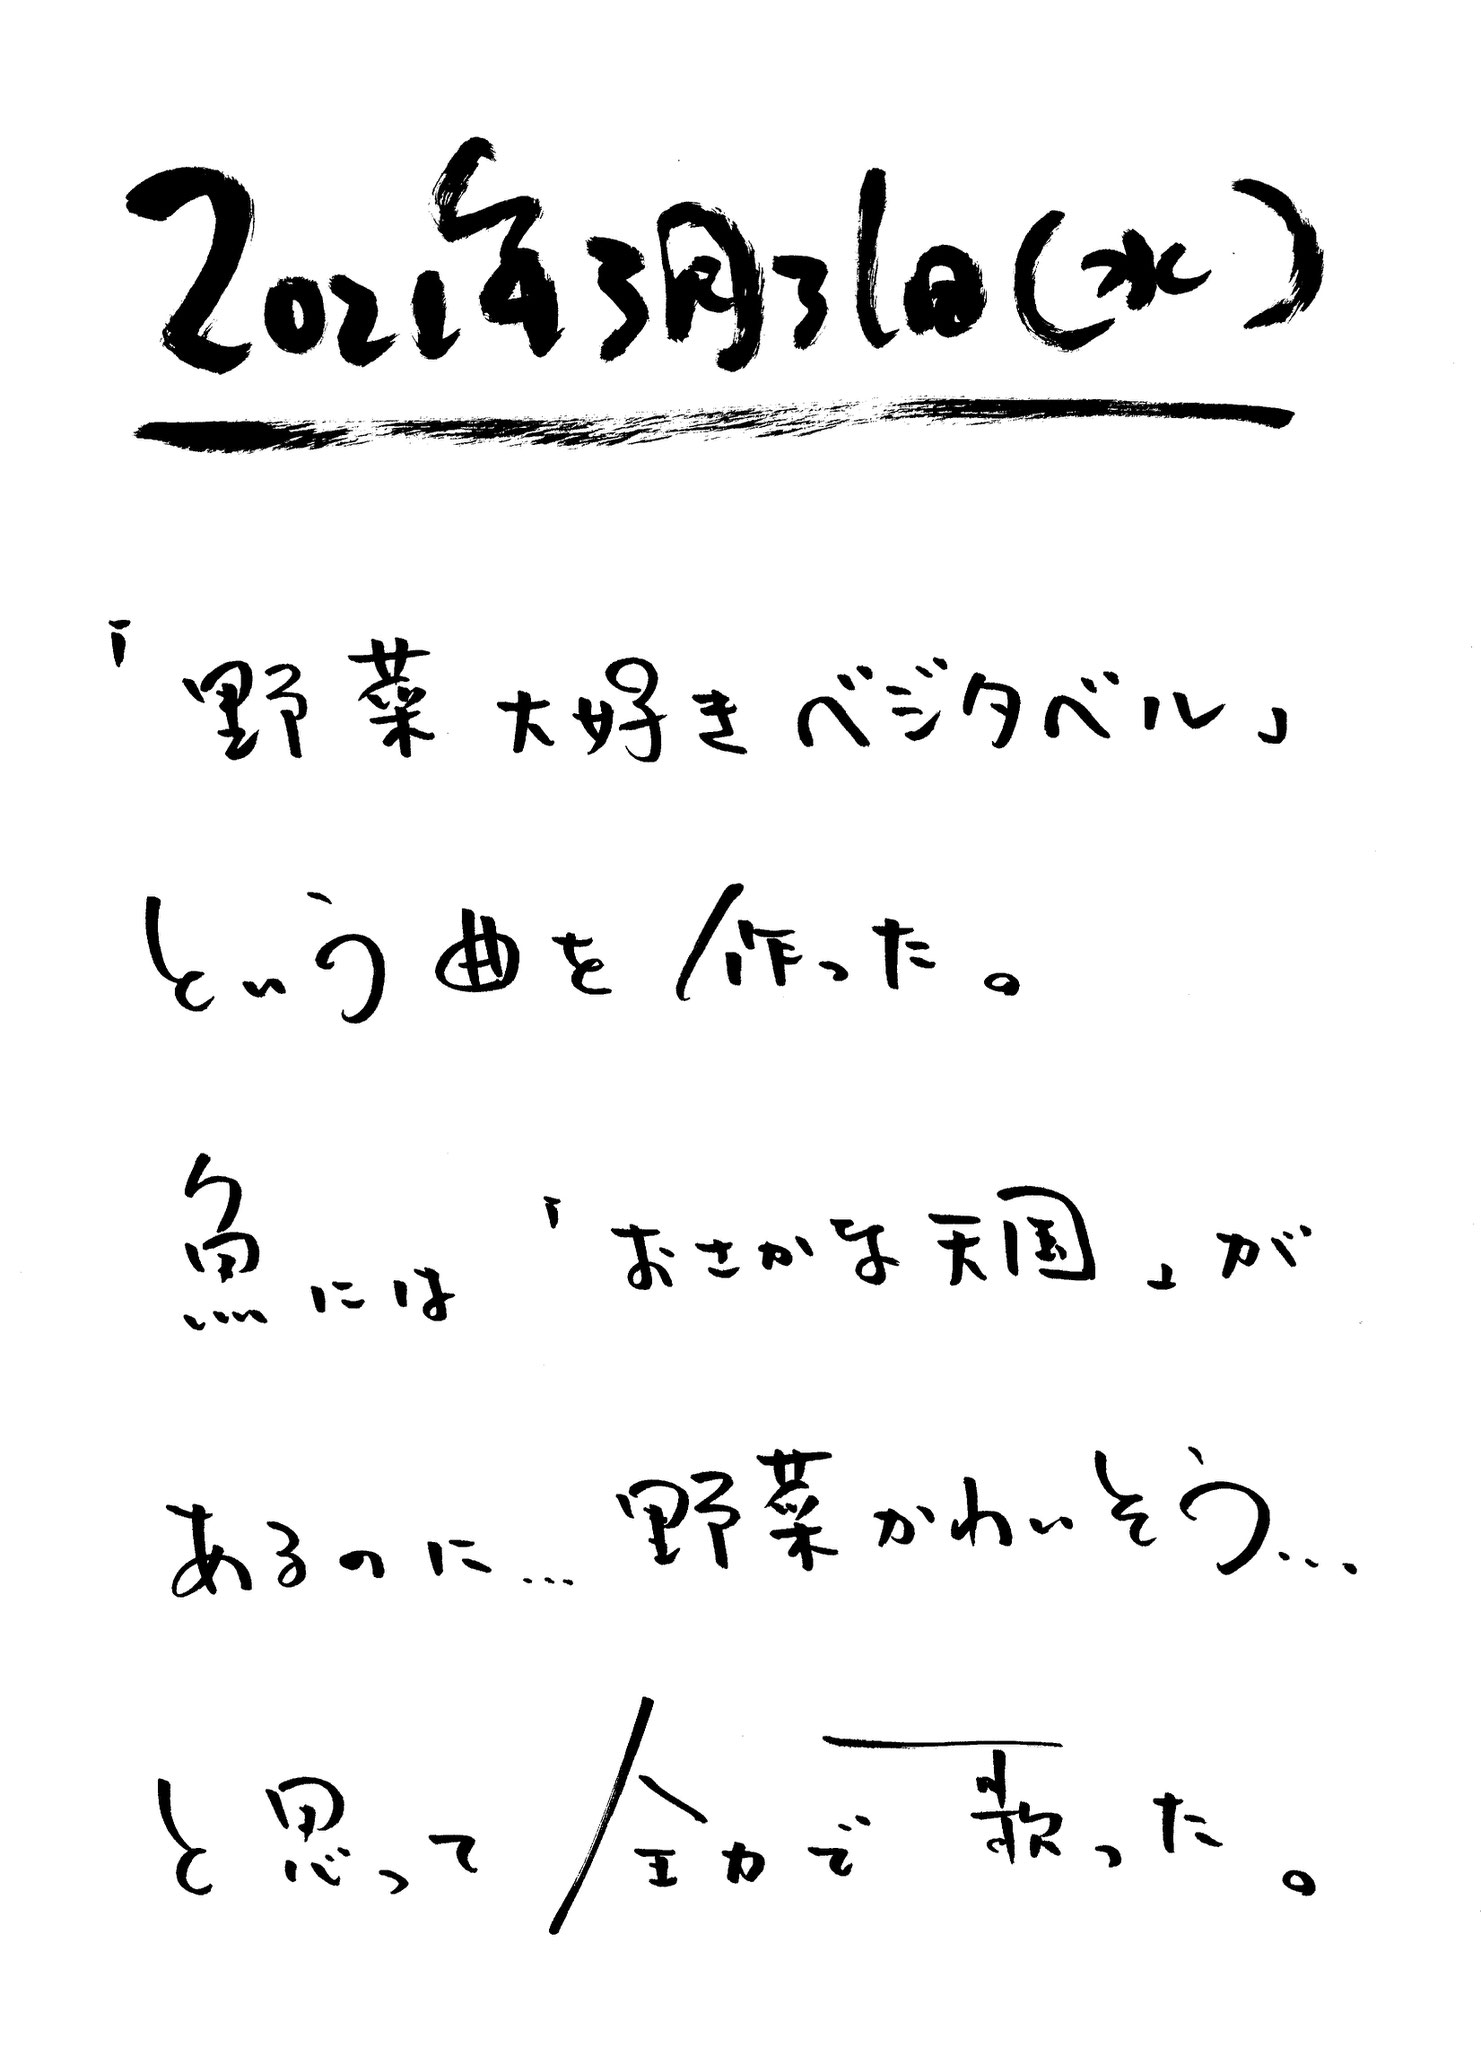 2021年3月31日(水)
「野菜大好きベジタベル」
という曲を作った。
魚には「おさかな天国」が
あるのに…野菜かわいそう…
と思って全力で歌った。